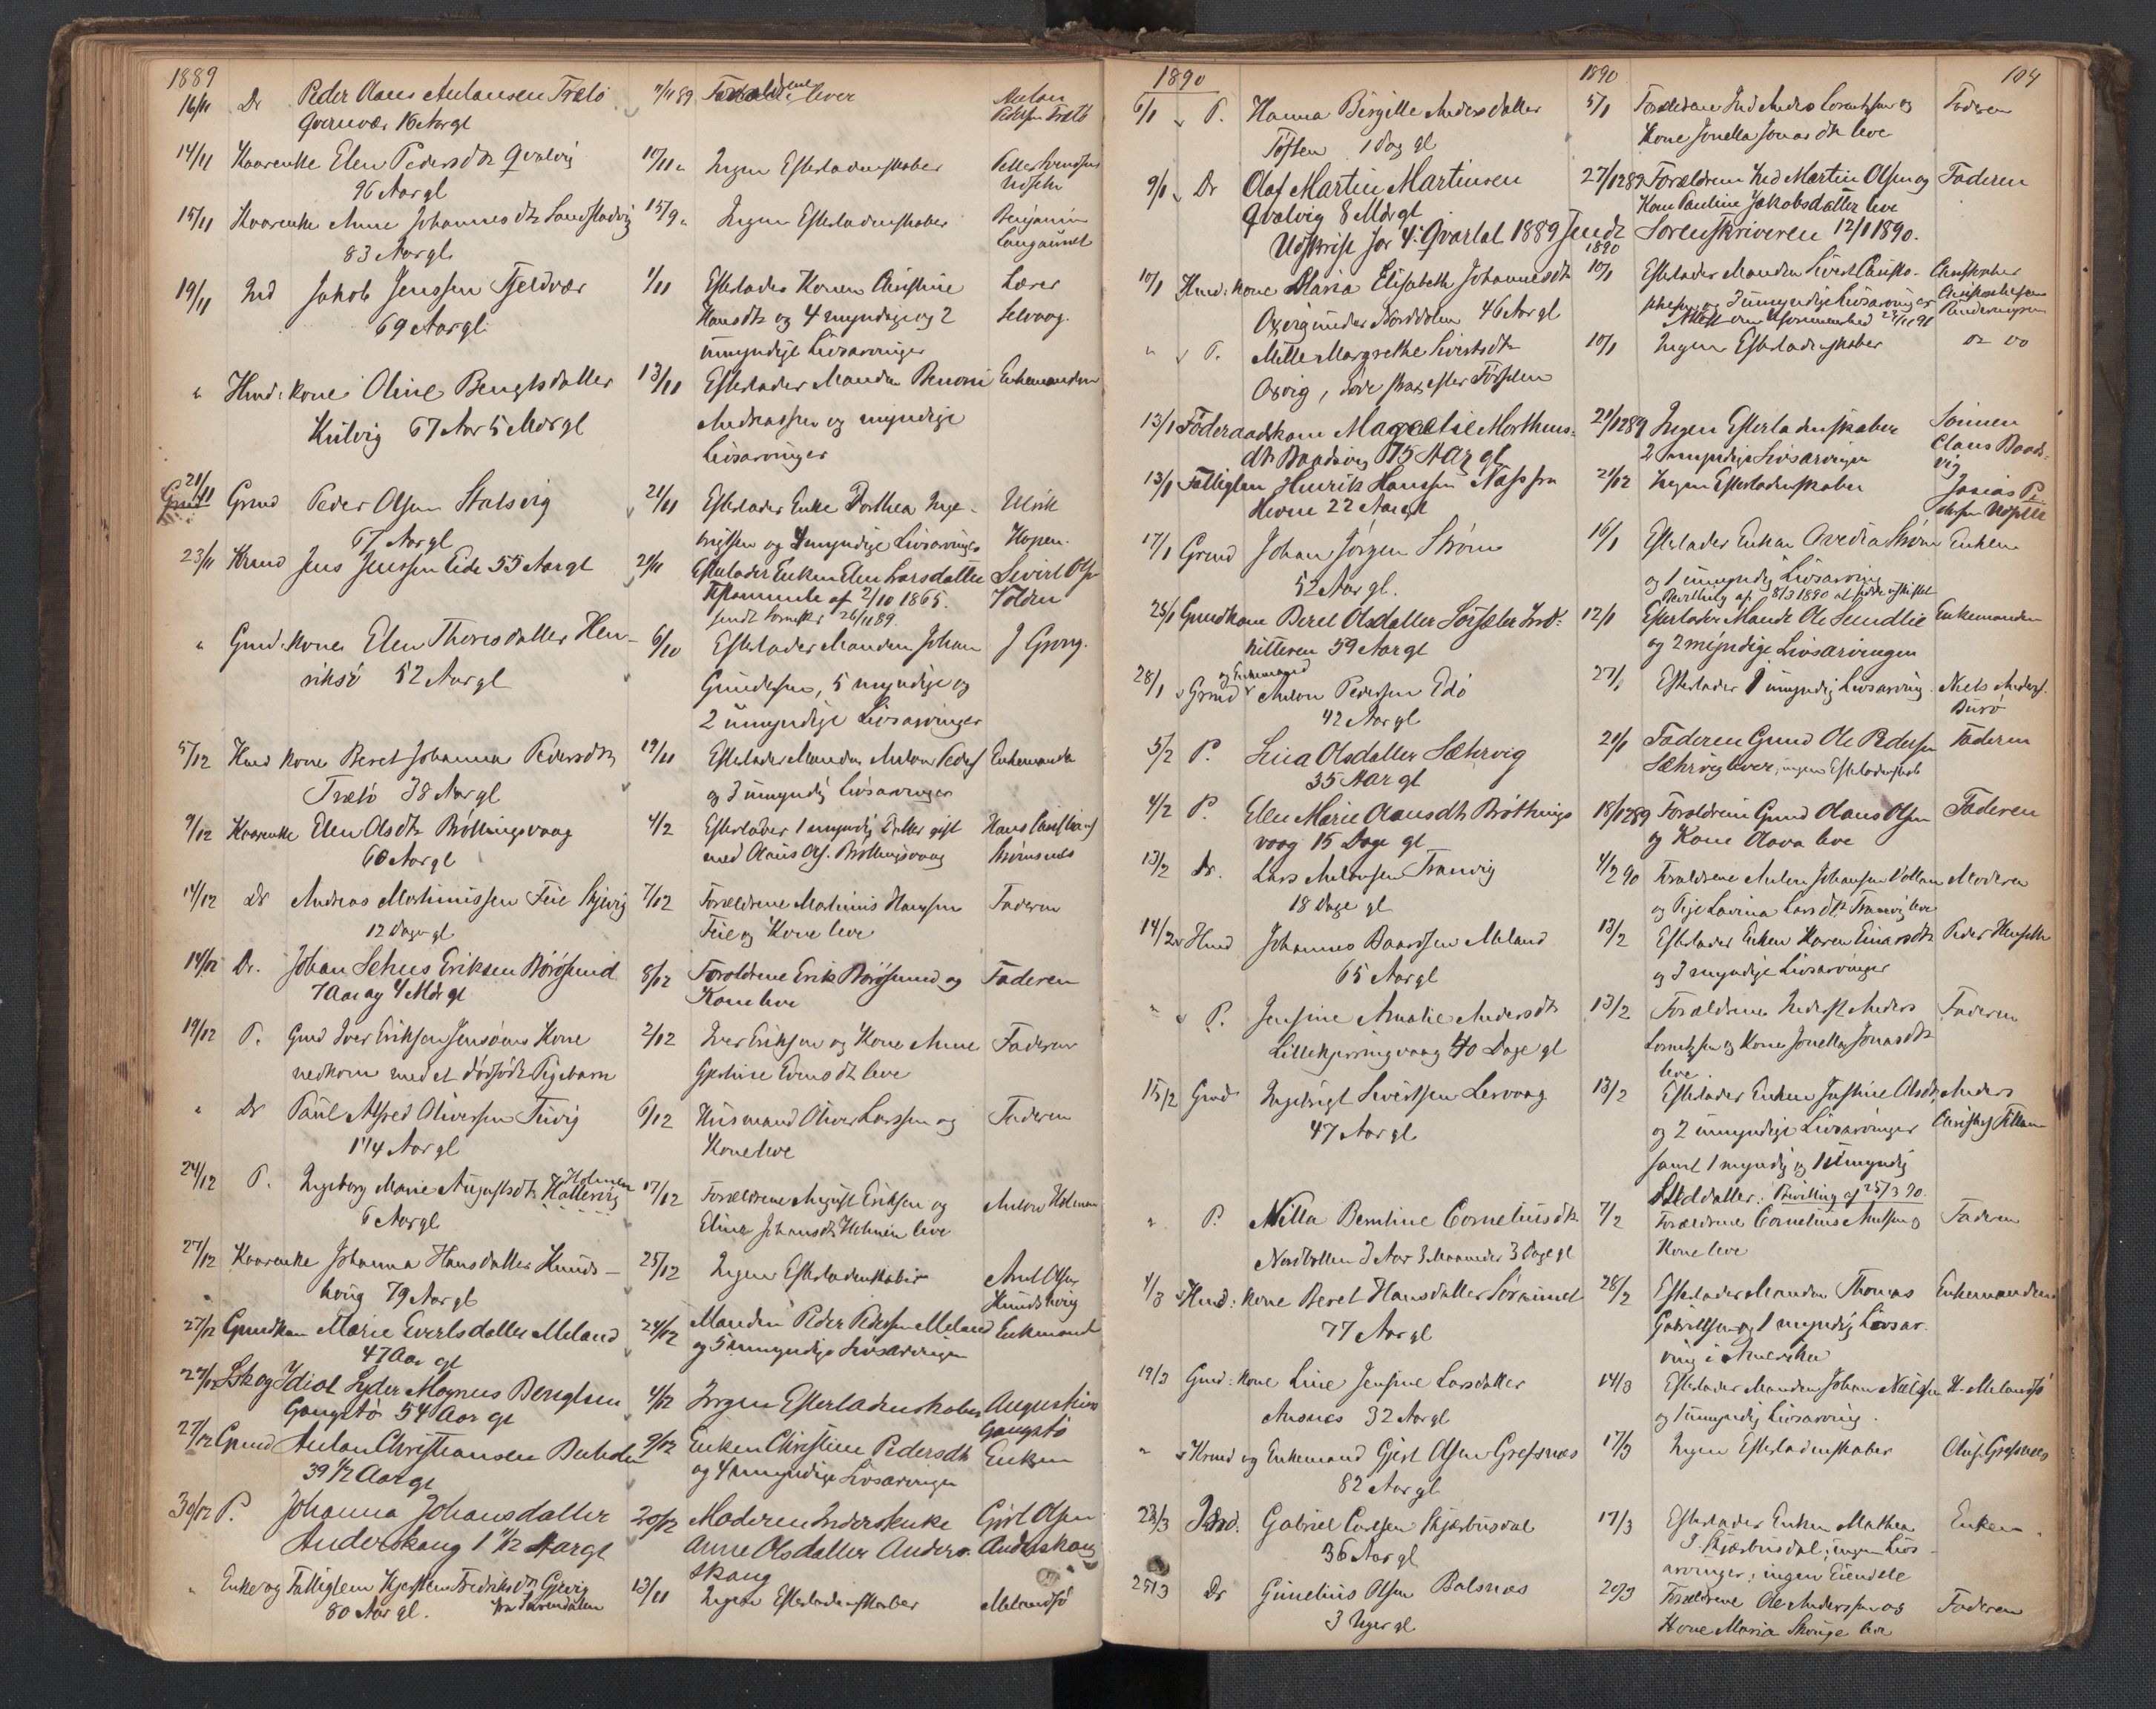 1889
16/11 Dr Peder Olaus Antonsen Trætö 7/11 89 Forældrene lever Anton
Qvernvær 16 Aar gl Pedersen Trætö
14/11 Kaarenke Elen Pedersdtr Qvalvig 10/11 " Ingen Efterladenskaber Petter
96 Aar gl
15/11 Kaarenke Anne Johannesdtr Sandstadvig 15/9 " Ingen Efterladenskaber Benjamin
83 Aar gl Langaunet
19/11 Ind Jakob Jenssen Fjeldvær 1/11 Efterlader Konen Christine Lærer
69 Aar gl Hansdtr og 4 myndige og 2 Selvaag.
umyndige Livsarvinger
" Hmd: kone Oline Bengtsdatter 13/11 Efterlader Manden Benoni Enkemanden
Kulvig 67 Aar 5 Mdr gl Andreassen og myndige
Livsarvinger
21/11 Grmd Peder Olsen Stalsvig 21/11 Efterlader Enke Dorthea Inge- Ulrik
67 Aar gl britsen og 4 myndige Livsarvinger Hopen.
23/11 Krmd Jens Jenssen Eide 55 Aar gl 21/11 Efterlader Enken Elen Larsdatter Sivert Ols
Testamente af 2/10 1865. Volden
sendt Sorenskr 26/11 89.
" Gmd: kone Elen Thoresdatter Hen- 6/10 Efterlader Manden Johan J Georg.
riksö 52 Aar gl Gundersen, 5 myndige og
2 umyndige Livsarvinger
5/12 Hmd kone Beret Johanna Pedersdtr 19/11 Efterlader Manden Anton Peders Enkemanden
Trætö 38 Aar gl og 3 umyndig Livsarvinger
9/12 Kaarenke Elen Olsdtr Bröttingsvaag 4/2 Efterlader 1 myndig Datter gift Hans Christians
68 Aar gl med Olaus Ols. Bröttingsvaag Strömsnes
14/12 Dr Andreas Martinussen Feie 7/12 Forældrene Martinus Hanssen Faderen
12 Dage gl Feie og Kone leve
14/12 Dr. Johan Sehus Eriksen Börösund 8/12 Forældrene Erik Börösund og Faderen
7 Aar og 4 Mdr gl Kone leve
19/12 P. Gmd Iver Eriksen Jensöens Kone 2/12 Iver Eriksen og Kone Anne Faderen
nedkom med et dödfödt Pigebarn Gjertine Evensdtr leve
" Dr Paul Alfred Oliversen Tuvig 6/12 Husmand Oliver Larssen og Faderen
1 1/4 Aar gl Kone leve
24/12 P. Ingeborg Marie Augustsdtr Hattevig Holmen 17/12 Forældrene August Eriksen og Anton Holmen
6 Aar gl Eline Johansdtr Holmen leve
27/12 Kaarenke Johanna Hansdatter Kunds- 25/12 Ingen Efterladenskaber Arnt Olsen
houg 79 Aar gl Kundshoug
27/12 Gmdkone Marie Evertsdatter Meland 24/12 Manden Peder Pedersen Meland Enkemand
47 Aar gl og 5 umyndige Livsarvinger
27/12 Lsk og Idiot Lyder Magnus Bengtsen 4/12 Ingen Efterladenskaber Augustinus
Gangstö 54 Aar gl Gangstö
27/12 Gmd Anton Christiansen Buholm 9/12 Enken Christine Pedersdtr Enken
39 1/2 Aar gl og 4 umyndige Livsarvinger
30/12 P. Johanna Johansdatter 20/12 Moderen Inderstenke Gjert Olsen
Anderskaug 1 1/12 Aar gl Anne Olsdatter Anders- Anderskaug
skaug
" Enke og Fattiglem Kjersten Fredriksdtr Gjevig 13/11 Ingen Efterladenskaber Melandsö
80 Aar gl. fra Surendalen
1890 1890 104
6/1 P. Hanna Birgitte Andersdatter 5/1 Forældrene Ind Anders Lorentzen og Faderen
Toften 1 Dag gl Kone Jonetta Jonasdtr leve
9/1 Dr Olaf Martin Martinsen 27/12 89 Forældrene Ind Martin Olsen og Faderen
Qvalvig 8 Mdr gl Kone Pauline Jakobsdatter leve
Udskrift for 4. Qvartal 1889 sendt Sorenskriveren 12/1 1890.
1890
10/1 Hmd: kone Maria Elisabeth Johannesdtr 10/1 Efterlader Manden Sivert Christo- Christopher
Oxvig under Nordholm 46 Aar gl phersen og 3 umyndige Livsarvinger
" P. Mette Margrethe Sivertsdtr 10/1 Ingen Efterladenskaber
Oxvig, döde strax efter Födselen
13/1 Föderaadskone Margrethe Morthens- 21/12 89 Ingen Efterladenskaber Sönnen
dtr Baadsvig 75 Aar gl 2 myndige Livsarvinger Claus Baads-
vig
13/1 Fattiglem Henrik Hanssen Næss fra 21/12 Ingen Efterladenskaber Josias Pe
Hevne 22 Aar gl
17/1 Grmd Johan Jörgen Ström 16/1 Efterlader Enken Ovedia Ström Enken
52 Aar gl. og 1 umyndig Livsarving
Bevilling af 8/3 1890 at sidde i uskiftet
25/1 Gmdkone Beret Olsdatter Sörsæter Ind- 12/1 Efterlader Mand Ole Sundlie Enkemanden
hitteren 59 Aar gl og 2 myndige Livsarvinger
28/1 Grmd og Enkemand Anton Pedersen Edö 27/1 Efterlader 1 umyndig Livsarving. Niels Anders.
42 Aar gl Burö
5/2 P. Lina Olsdatter Sæhrvig 21/1 Faderen Gmd Ole Pedersen Faderen
35 Aar gl Sæhrvig lever, ingen Efterladenskab
4/2 P. Elen Marie Olausdtr Bröttings- 18/12 89 Forældrene Gmd Olaus Olsen Faderen
vaag 15 Dage gl og Kone Olava leve
13/2 Dr. Lars Antonsen Tranvig 4/2 90 Forældrene Anton Johansen Vollan Moderen
18 Dage gl og Pige Lavina Larsdtr Tranvig leve
14/2 Hmd Johannes Baardsen Meland 13/2 Efterlader Enken Karen Einarsdtr Peder
65 Aar gl og 3 myndige Livsarvinger
" P. Jensine Amalie Andersdtr 13/2 Forældrene Inderst Anders Faderen
Lillekjerringvaag 40 Dage gl Lorentzen og Kone Jonetta Jonasdtr
leve.
15/2 Gmd Ingebrigt Sivertsen Lervaag 13/2 Efterlader Enken Justine Olsdtr Anders
47 Aar gl og 2 umyndige Livsarvinger Christophs
samt 1 myndig og 1 umyndig
Steddatter. Bevilling af 25/3 90.
" P. Nella Berntine Corneliusdtr 7/2 Forældrene Cornelius Antsen og Faderen
Nordbotten 3 Aar 3 Maaneder 3 Dage gl Kone leve
4/3 Hmd: kone Beret Hansdatter Söraunet 28/2 Efterlader Manden Thomas Enkemanden
77 Aar gl Gabrielsen og 1 myndig Livsar-
ving i Amerika
19/3 Gmd: kone Line Jensine Larsdatter 14/3 Efterlader Manden Johan Nielsen H. Melandsö
Ansnes 32 Aar gl og 1 umyndig Livsarving.
" Krmd og Enkemand Gjert Olsen Grefsnæs 17/3 Ingen Efterladenskaber Olaf Grefsnæs
82 Aar gl
23/3 Ind. Gabriel Carlsen Skjærbusdal 17/3 Efterlader Enken Mathea Enken
36 Aar gl J. Skjærbusdal; ingen Livs-
arvinger; ingen Eiendele
25/3 Dr Gunelius Olsen Balsnes 20/3 Forældrene Ole Anderssen og Faderen
3 Uger gl Kone Maria Skauge leve